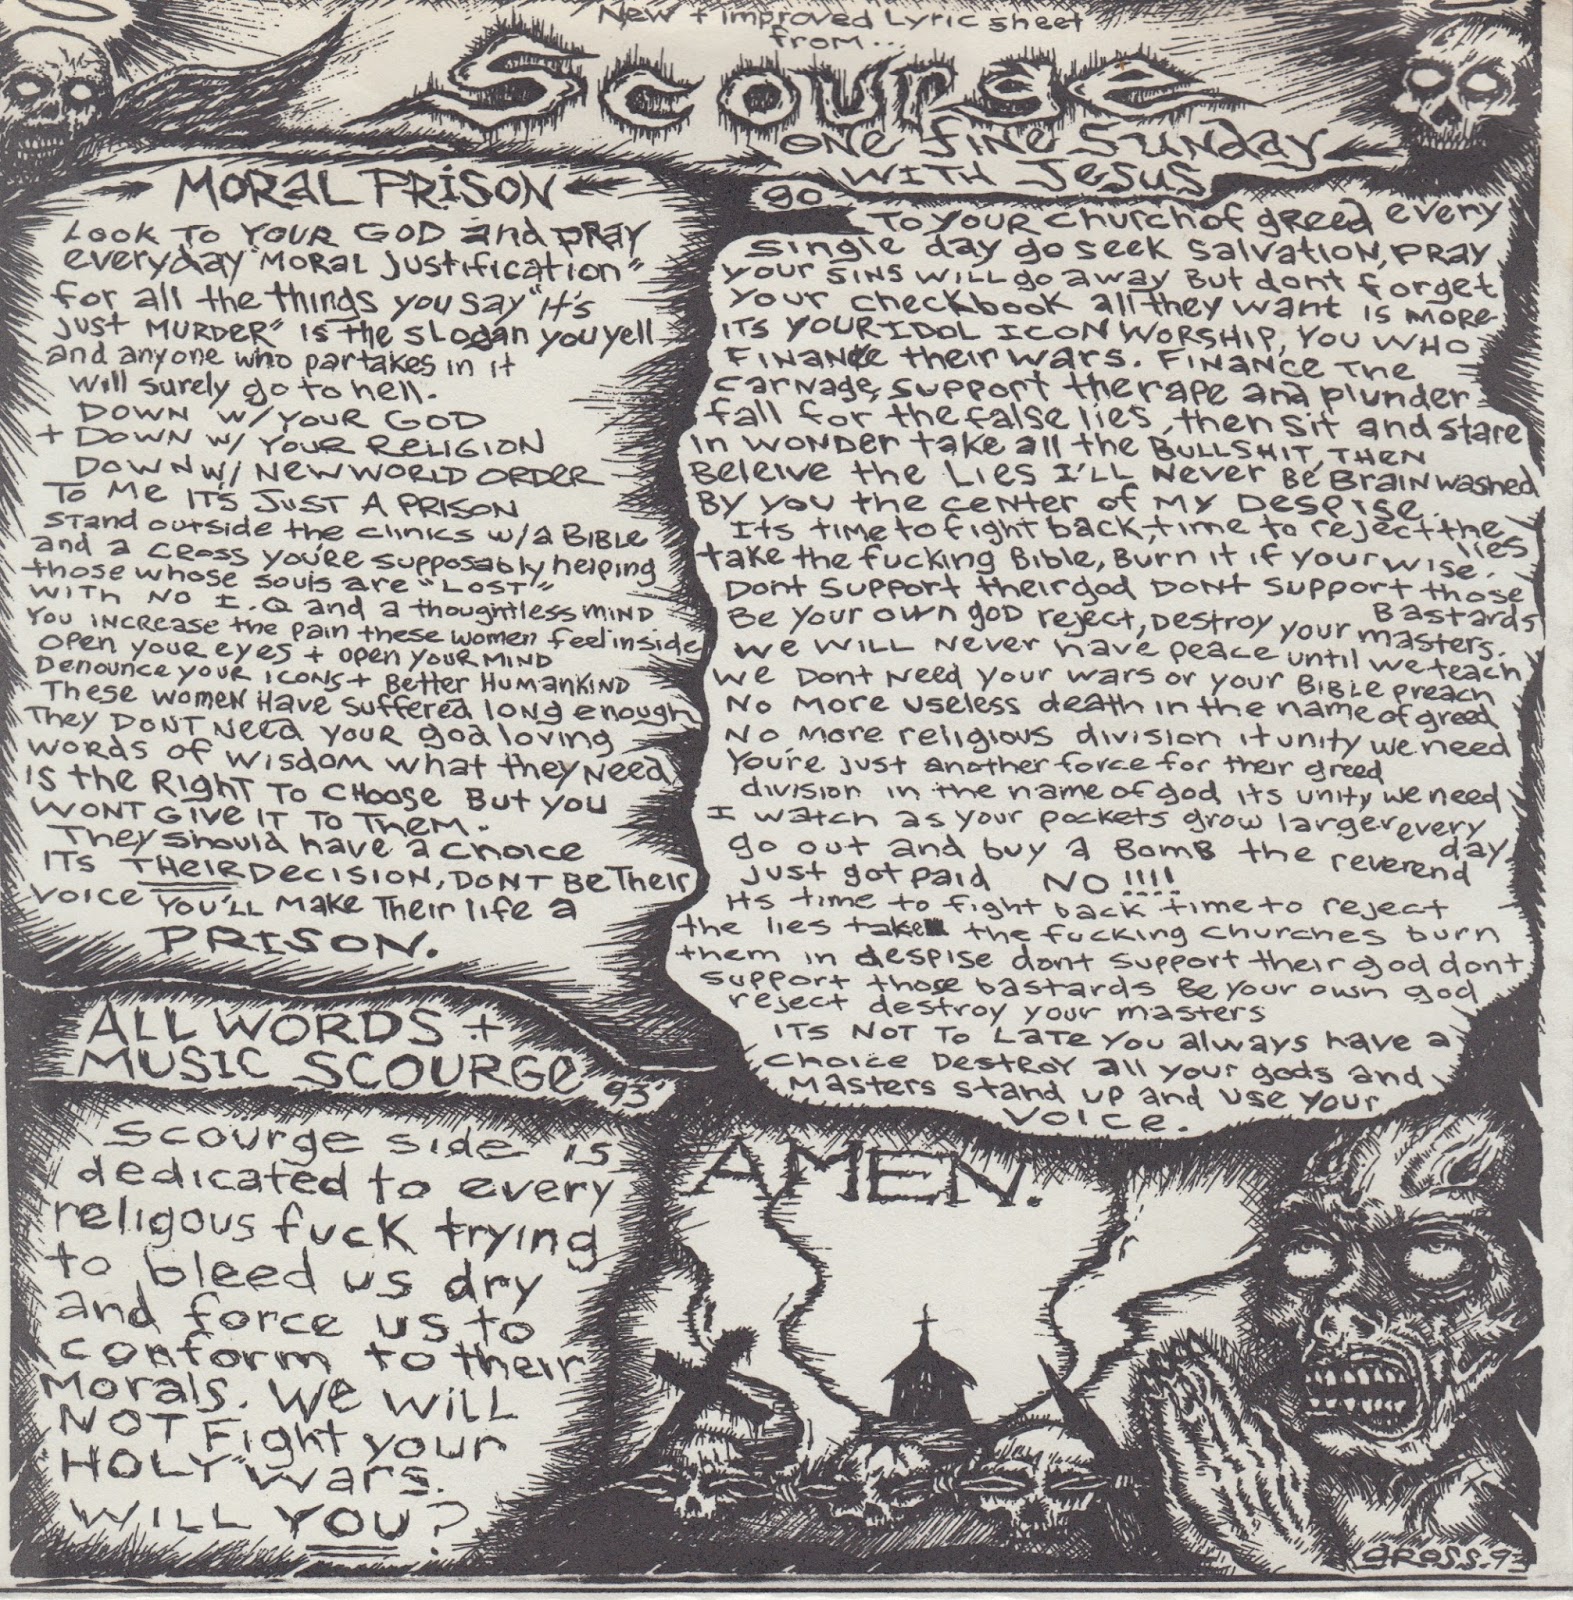 New + improved Lyric sheet
from...
Scourge
MORAL PRISON
Look to YOUR GOD and pray
everyday "MORAL Justification"
for all the things you say "it's
just MURDER" is the slogan you yell
and anyone who partakes in it
will surely go to hell.
DOWN w/ YOUR GOD
+ DOWN w/ YOUR RELIGION
DOWN w/ NEW WORLD ORDER
TO ME IT'S JUST A PRISON
stand outside the clinics w/a BIBLE
and a CROSS you're supposably helping
those whose souls are "LOST"
WITH NO I.Q and a thoughtless MIND
You increase the pain these women feel inside
open your eyes + open your MIND
Denounce your icons + Better Humankind
These women Have suffered long enough
They DON'T Need your god loving
words of wisdom what they Need
is the Right To CHOOSE But you
WONT GIVE IT TO Them.
They should have a choice
ITs THEIR DECISION, DONT Be Their
voice YOU'LL Make Their life a
PRISON.
ALL WORDS +
MUSIC SCOURGE 93'
Scourge side is
dedicated to every
religous fuck trying
to bleed us dry
and force us to
conform to their
Morals. We will
NOT Fight your
"HOLY" Wars.
WILL YOU?
ONE fine Sunday
WITH Jesus
go
To your church of greed every
single day go seek salvation, pray
your sins will go away But dont forget
your checkbook all they want is more
ITs YOUR IDOL ICON WORSHIP, YOU WHO
FINANCE their wars. FINANCE THE
carnage, support the rape and plunder
fall for the false lies, then sit and stare
in wonder take all the BULLSHIT, THEN
Beleive the Lies I'LL Never Be Brain washed
By you the center of MY DESPISE.
Its time to fight back, time to reject the lies
take the fucking Bible, Burn it if your wise.
Dont support their god DONT support those Bastards
Be your own god reject, Destroy your masters.
we will never have peace until we teach
we Dont Need your wars or your BIBLE preach
No more useless death in the name of greed
No more religious division it unity we need
You're just another force for their greed
division in the name of god its unity we need
I watch as your pockets grow larger every day
go out and buy a BOMB the reverend
just got paid NO!!!!
Its time to fight back time to reject
the lies take the fucking churches burn
them in despise dont support their god dont
support those bastards Be your own god
reject destroy your masters
ITS NOT TO LATE You always have a
choice Destroy all your gods and
masters stand up and use your
voice.
AMEN.
GROSS.93